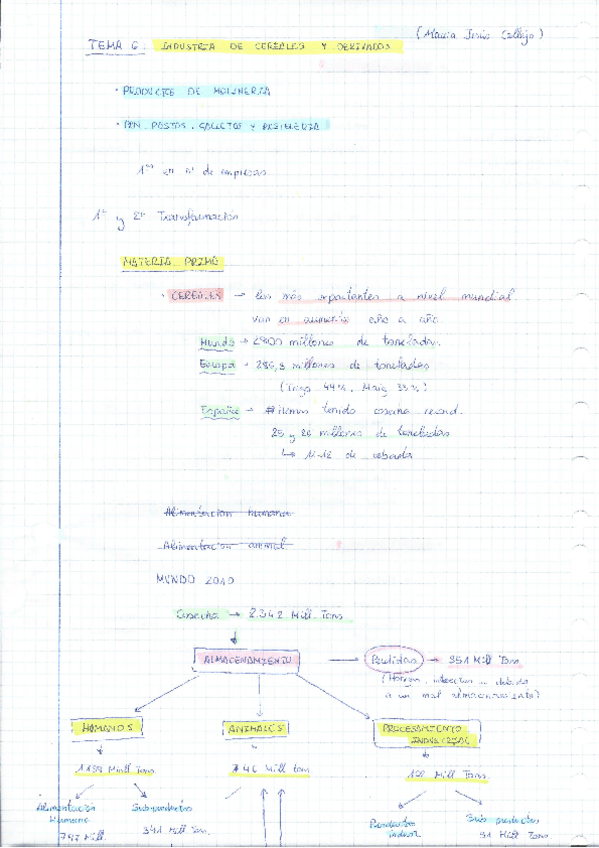 (Maria Jesús Callejo)
TEMA 6: INDUSTRIA DE CEREALES Y DERIVADOS
· PRODUCTOS DE MOLINERIA
· PAN, PASTAS, GALLETAS Y PASTELERIA
1ª en nº de empresas
1ª y 2ª Transformación
MATERIA PRIMA
· CEREALES → los más importantes a nivel mundial
van en aumento año a año
Mundo → 2900 millones de toneladas.
Europa → 286,3 millones de toneladas
(Trigo 44%, Maiz 33%)
España → Hemos tenido cosecha record.
25 y 26 millones de toneladas
↳ 11-12 de cebada
Alimentacion humana
Alimentacion animal
MUNDO 2010
Cosecha → 2.342 Mill. Tons
ALMACENAMIENTO → Perdidas → 351 Mill Tons
(Hongos, insectos ... debido
a un mal almacenamiento)
HUMANOS ANIMALES PROCESAMIENTO
INDUSTRIAL
1139 Mill Tons 746 Mill ton Mill Tons
Alimentación Subproductos
Humana
797 Mill. 341 Mill Ton. Productos Sub productos
51 Mill Tons